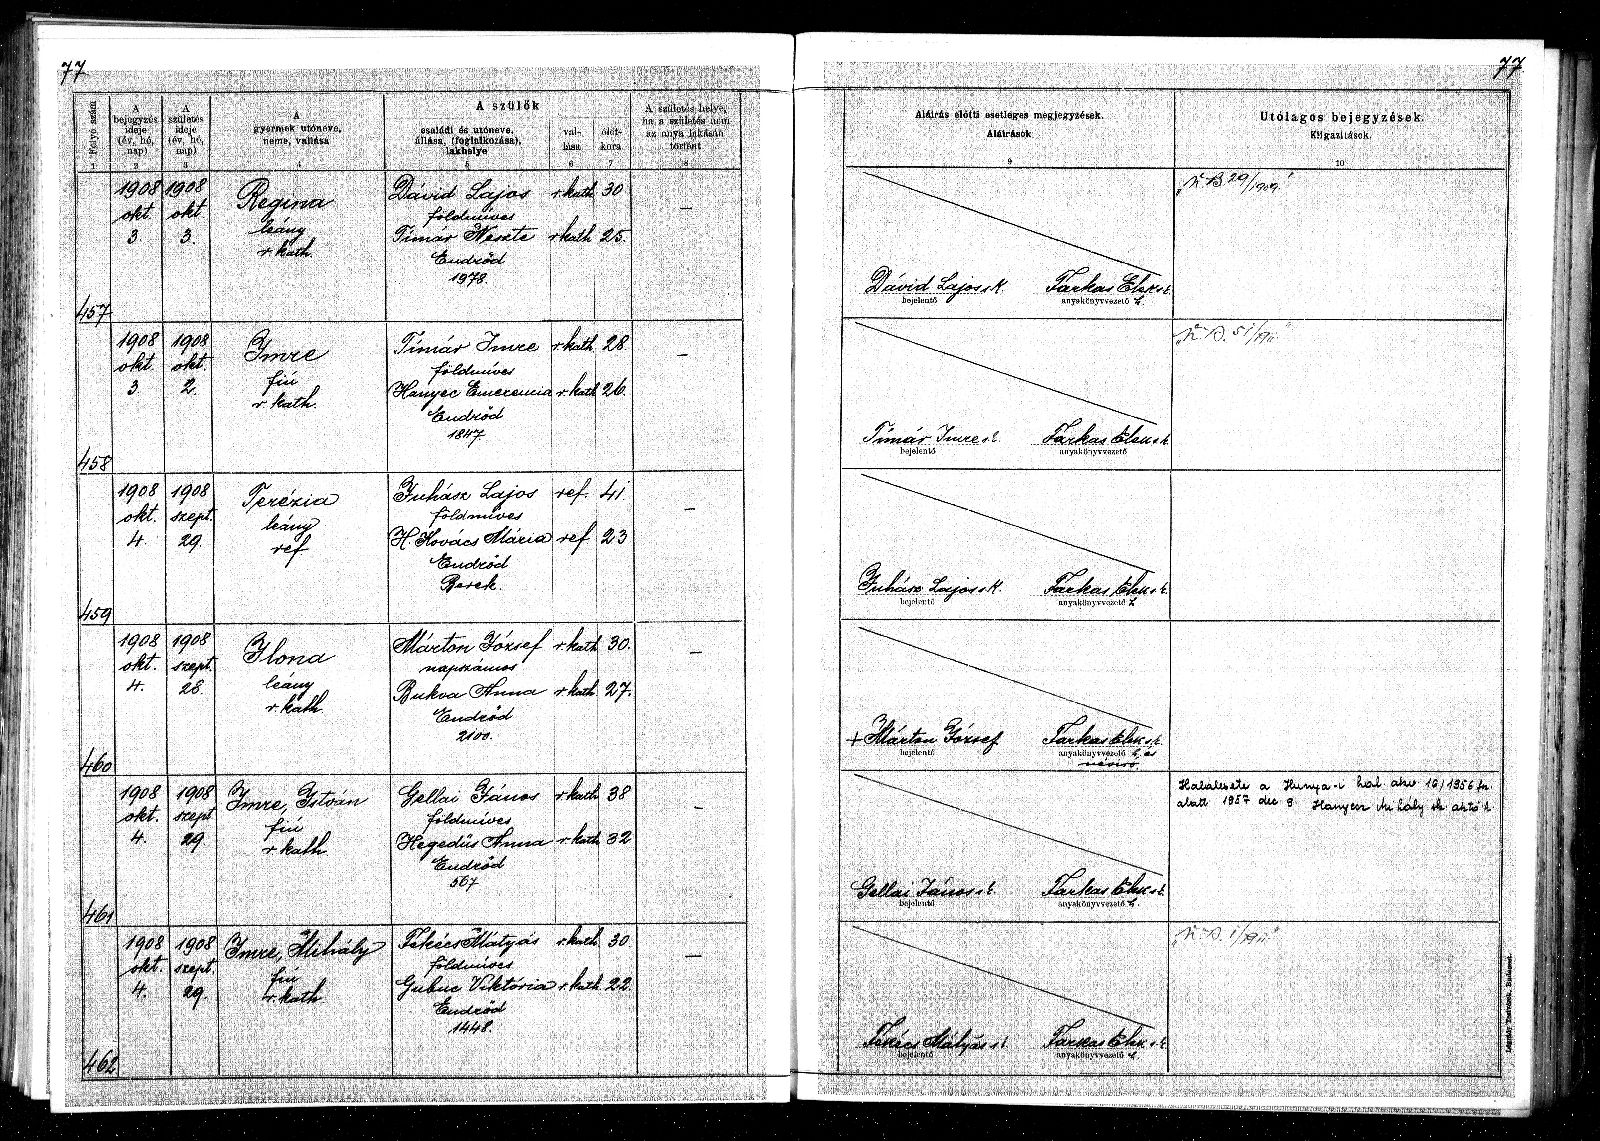 77
77
Folyó szám
A bejegyzés ideje (év, hó, nap)
A születés ideje (év, hó, nap)
A gyermek utóneve, neme, vallása
A szülők
családi és utóneve, állása, (foglalkozása), lakhelye
val-lása
élet-kora
A születés helye, ha a születés nem az anya lakásán történt
Aláírás előtti esetleges megjegyzések.
Aláírások
Utólagos bejegyzések.
Kiigazítások.
1 2 3 4 5 6 7 8 9 10
1908 1908 Regina Dávid Lajos r. kath 30 –
okt. okt földmíves
3. 3. leány Tímár Neszte r. kath 25.
r. kath. Endrőd
1978.
457
Dávid Lajos sk. Farkas Elek s.k.
bejelentő anyakönyvvezető h.
1908 1908 Imre Tímár Imre r. kath. 28. –
okt. okt. földmíves
3. 2. fiú Hanyec Emerencia r. kath 26.
r. kath. Endrőd
1847.
458
Tímár Imre s.k. Farkas Elek s.k.
bejelentő anyakönyvvezető
1908 1908 Terézia Juhász Lajos ref. 41 –
okt. szept. földmíves
4. 29. leány H. Kovács Mária ref. 23
ref Endrőd
Berek.
459
Juhász Lajos sk. Farkas Elek s.k.
bejelentő anyakönyvvezető h.
1908 1908 Ilona Márton József r. kath 30. –
okt. szept. napszámos
4. 28. leány Bukva Anna r. kath 27.
r. kath. Endrőd
2100.
460
+ Márton József Farkas Elek s.k.
bejelentő anyakönyvvezető h. és
névíró.
1908 1908 Imre, István Gellai János r. kath 38 –
okt. szept földmíves
4. 29 fiú Hegedűs Anna r. kath 32
r. kath Endrőd
567
461
Gellai János s.k. Farkas Elek s.k.
bejelentő anyakönyvvezető h.
Halálesete a Hunya-i hal. akv 16/1956 fsz.
alatt 1957 dec 9. Hanyecz Mihály sk.
1908 1908 Imre, Mihály Fekécs Mátyás r. kath. 30. –
okt. szept. földmíves
4. 29. fiú Gubuc Viktória r. kath. 22.
r. kath. Endrőd
1448.
462
Fekécs Mátyás s.k. Farkas Elek s.k.
bejelentő anyakönyvvezető h.